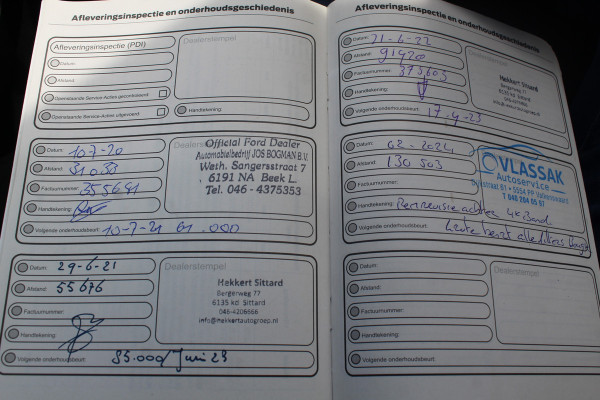 Afleveringsinspectie en onderhoudsgeschiedenis
Afleveringsinspectie (PDI)
Dealerstempel
Datum:
Afstand:
Openstaande Service-Acties gecontroleerd
Openstaande Service-Acties uitgevoerd
Handtekening:
Datum: 10-7-20
Afstand: 51038
Factuurnummer: 355691
Handtekening:
Volgende onderhoudsbeurt: 10-7-21 61.000
Dealerstempel
Official Ford Dealer
Automobielbedrijf JOS BOGMAN B.V.
Weth. Sangersstraat 7
6191 NA Beek L.
Tel. 046 - 4375353
Datum: 29-6-21
Afstand: 55676
Factuurnummer:
Handtekening:
Volgende onderhoudsbeurt:
Dealerstempel
Hekkert Sittard
Bergerweg 77
6135 kd Sittard
046-4206666
info@hekkertautogroep.nl
Afleveringsinspectie en onderhoudsgeschiedenis
Datum: 21-6-22
Afstand: 91920
Factuurnummer: 373603
Handtekening:
Volgende onderhoudsbeurt: 17-4-23
Hekkert Sittard
Bergerweg 77
6135 kd Sittard
Datum: 02-2024
Afstand: 130 503
Factuurnummer:
Handtekening: Remrevisie achter 4x Band
Volgende onderhoudsbeurt: Grote beurt alle filters
VLASSAK
Autoservice
Datum:
Afstand:
Factuurnummer:
Handtekening:
Volgende onderhoudsbeurt:
Dealerstempel